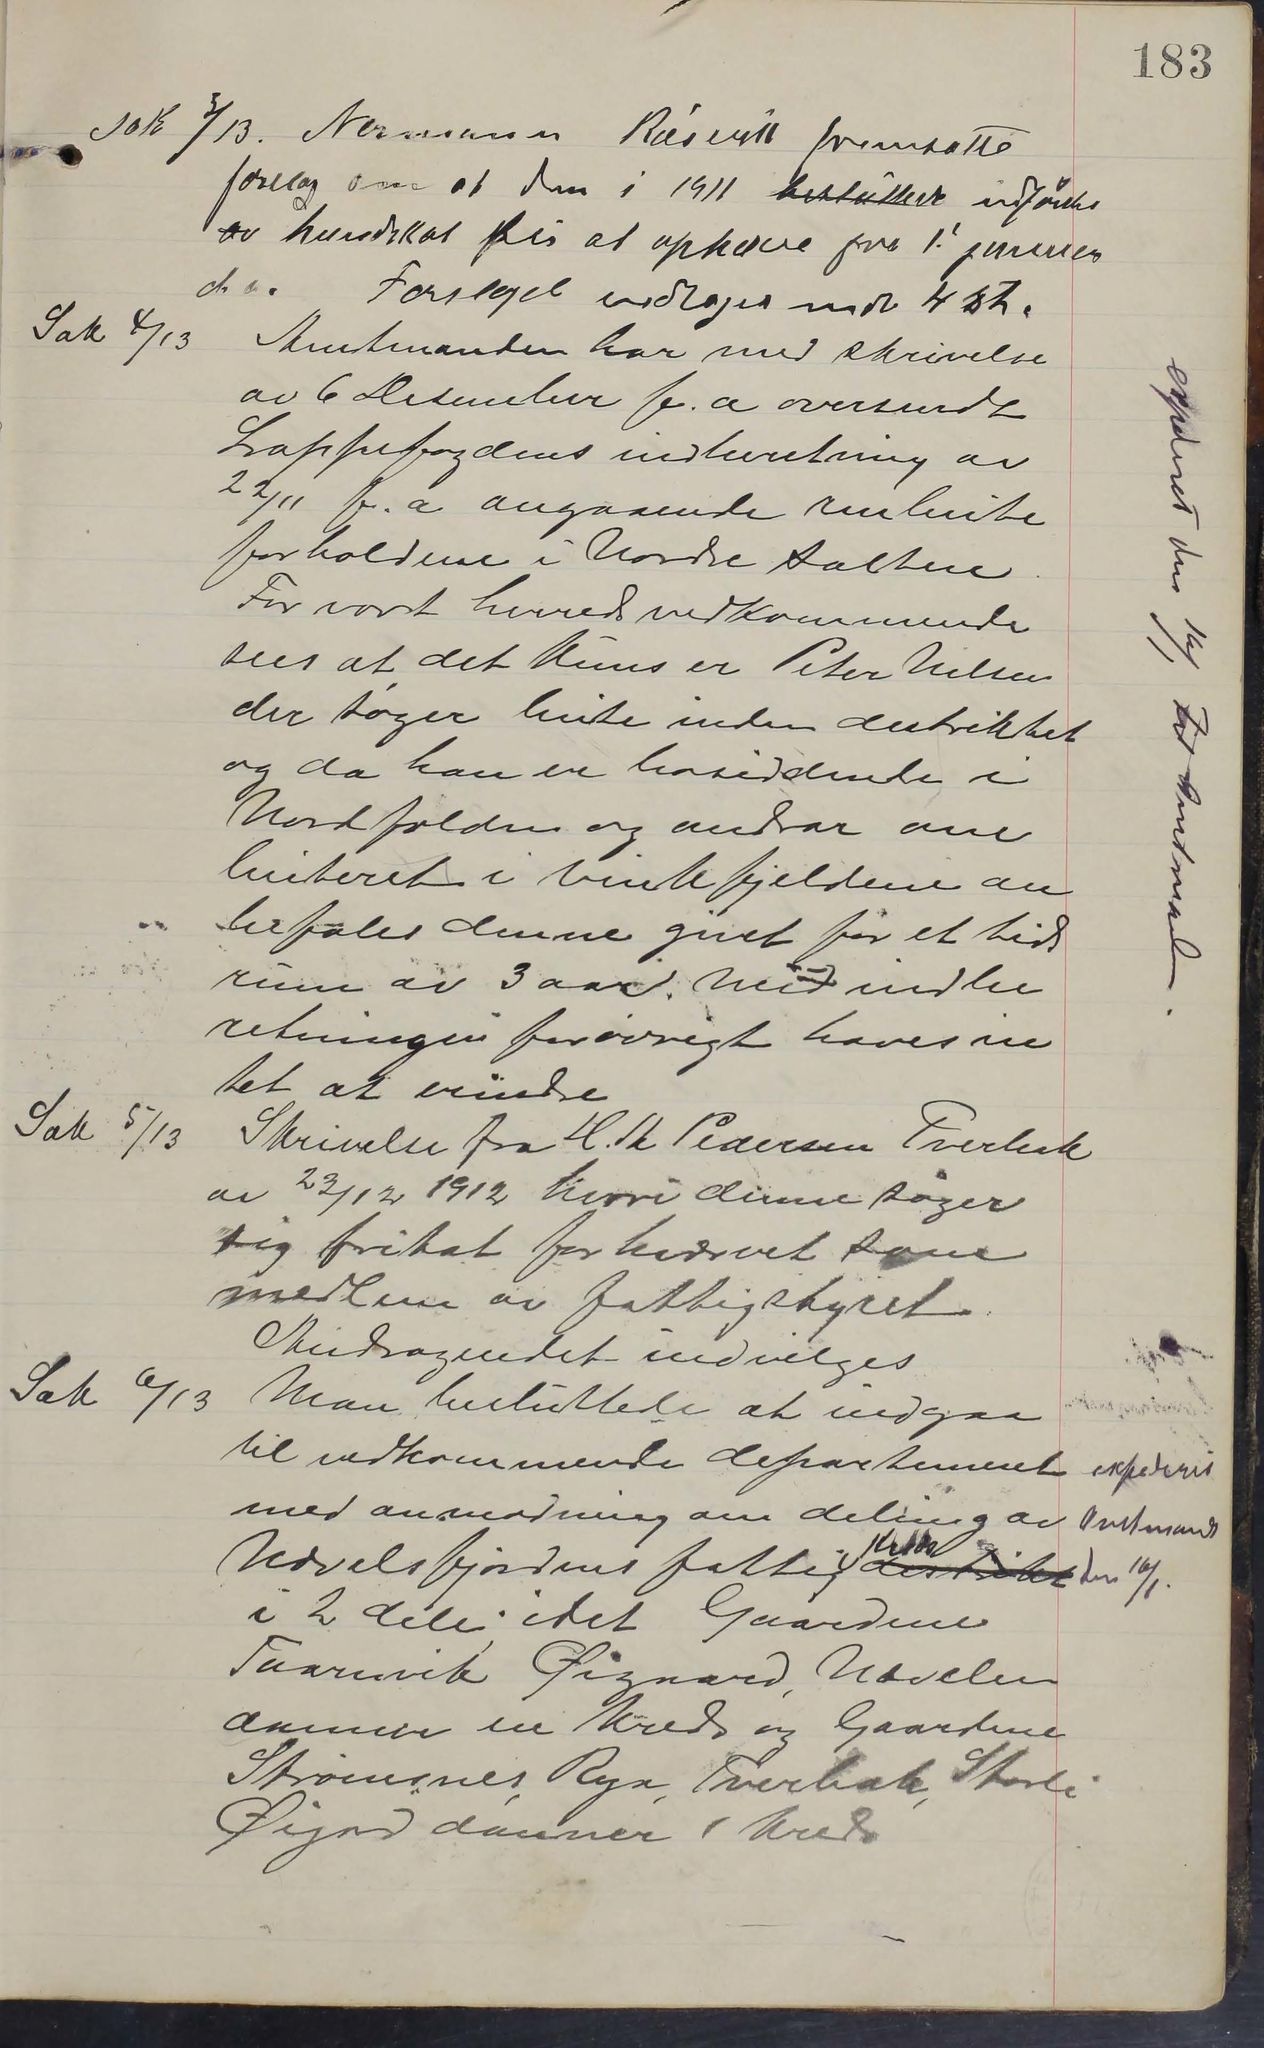 183
Sak 3/13. Normann Røsvik fremsatte
forslag om at den i 1911 besluttede indførte
av hundskat blir at ophæve fra 1. januar
d. a. Forslaget vedtages mot 4 st.
Sak 4/13 Amtmanden har med skrivelse
av 6 Desember f. a oversendt
Lappefogdens indberetning av
22/11 f. a angaaende renbeite
forholdene i Nordre Salten.
For vort herreds vedkommende
sees at det kuns er Peter Nilsen
der søger beite inden destriktet
og da han er bosiddende i
Nordfolden og andrar om
beiteret i Vinkfjeldene an
befales denne givet for et tids
rum av 3 aar. Mod indbe
retningen forøvrigt haves in
tet at erindre
expederet den 16/1 til Amtmand.
Sak 5/13 Skrivelse fra H. K Pedersen Tverbak
av 22/12 1912 hvori denne søger
sig fritat for hvervet som
medlem av fattigstyret.
Andragendet indvilges
Sak 6/13 Man besluttede at indgaa
til vedkommende departement
med anmodning om deling av
Nævelsfjordens fattig kreds destrikt
i 2 dele idet Gaardene
Taarnvik Øigaard, Nævelen
danner en kreds og Gaardene
Strømsnes, Rya, Tverbak, Storli
Øigard danner 1 kreds
expederet
Amtmand
den 16/1.